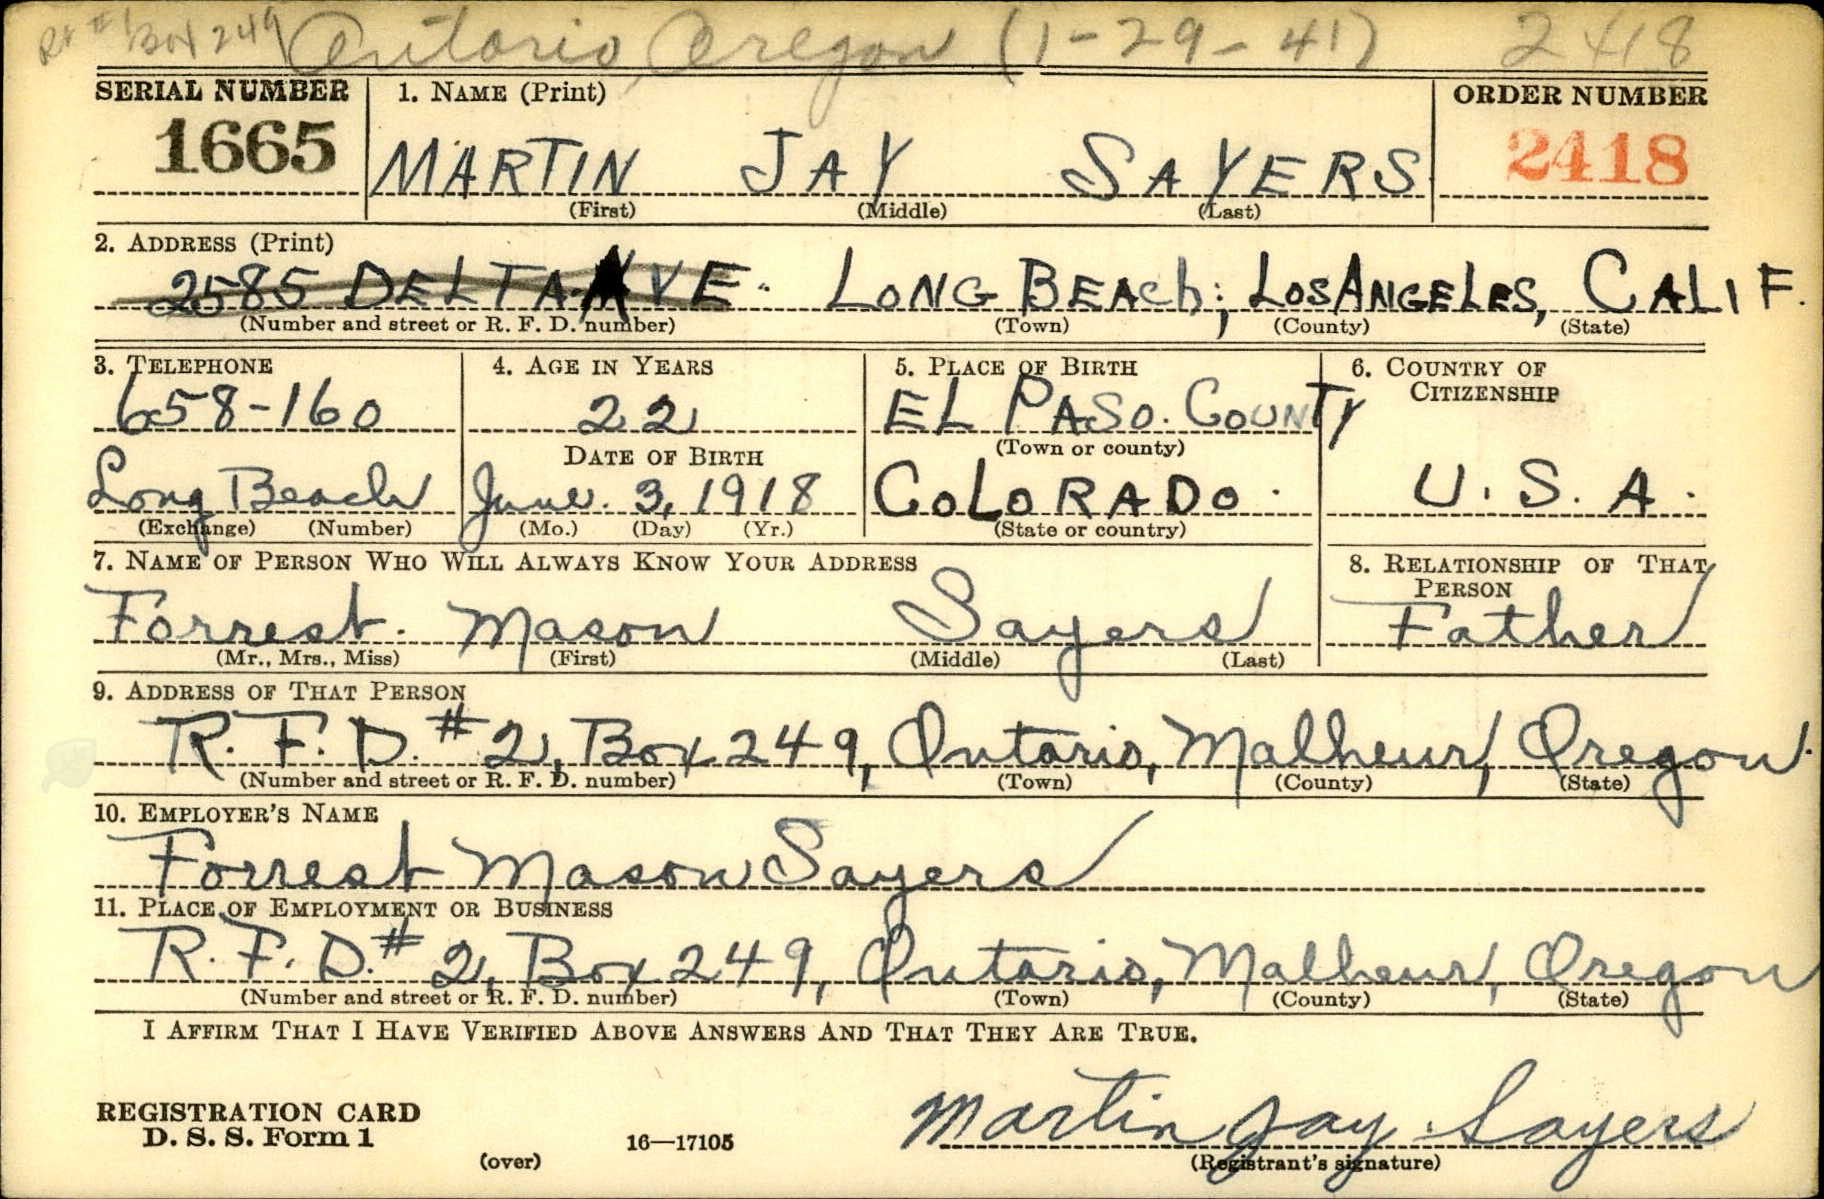 Rt #1 Box 249 Ontario, Oregon (1-29-41) 2418
SERIAL NUMBER 1. NAME (Print) ORDER NUMBER
1665 MARTIN JAY SAYERS 2418
(First) (Middle) (Last)
2. ADDRESS (Print)
2585 DELTA AVE. LONG BEACh, LOS ANGELES, CALIF.
(Number and street or R. F. D. number) (Town) (County) (State)
3. TELEPHONE 4. AGE IN YEARS 5. PLACE OF BIRTH 6. COUNTRY OF
CITIZENSHIP
658-160 22 EL PASO. COUNTY
(Town or county)
DATE OF BIRTH
Long Beach June. 3, 1918 COLORADO. U. S. A.
(Exchange) (Number) (Mo.) (Day) (Yr.) (State or country)
7. NAME OF PERSON WHO WILL ALWAYS KNOW YOUR ADDRESS 8. RELATIONSHIP OF THAT
PERSON
Forrest. Mason Sayers Father
(Mr., Mrs., Miss) (First) (Middle) (Last)
9. ADDRESS OF THAT PERSON
R. F. D. # 2, Box 249, Ontario, Malheur, Oregon.
(Number and street or R. F. D. number) (Town) (County) (State)
10. EMPLOYER'S NAME
Forrest Mason Sayers
11. PLACE OF EMPLOYMENT OR BUSINESS
R. F. D. # 2, Box 249, Ontario, Malheur, Oregon
(Number and street or R. F. D. number) (Town) (County) (State)
I AFFIRM THAT I HAVE VERIFIED ABOVE ANSWERS AND THAT THEY ARE TRUE.
REGISTRATION CARD
D. S. S. Form 1
(over)
16—17105
Martin Jay Sayers
(Registrant's signature)